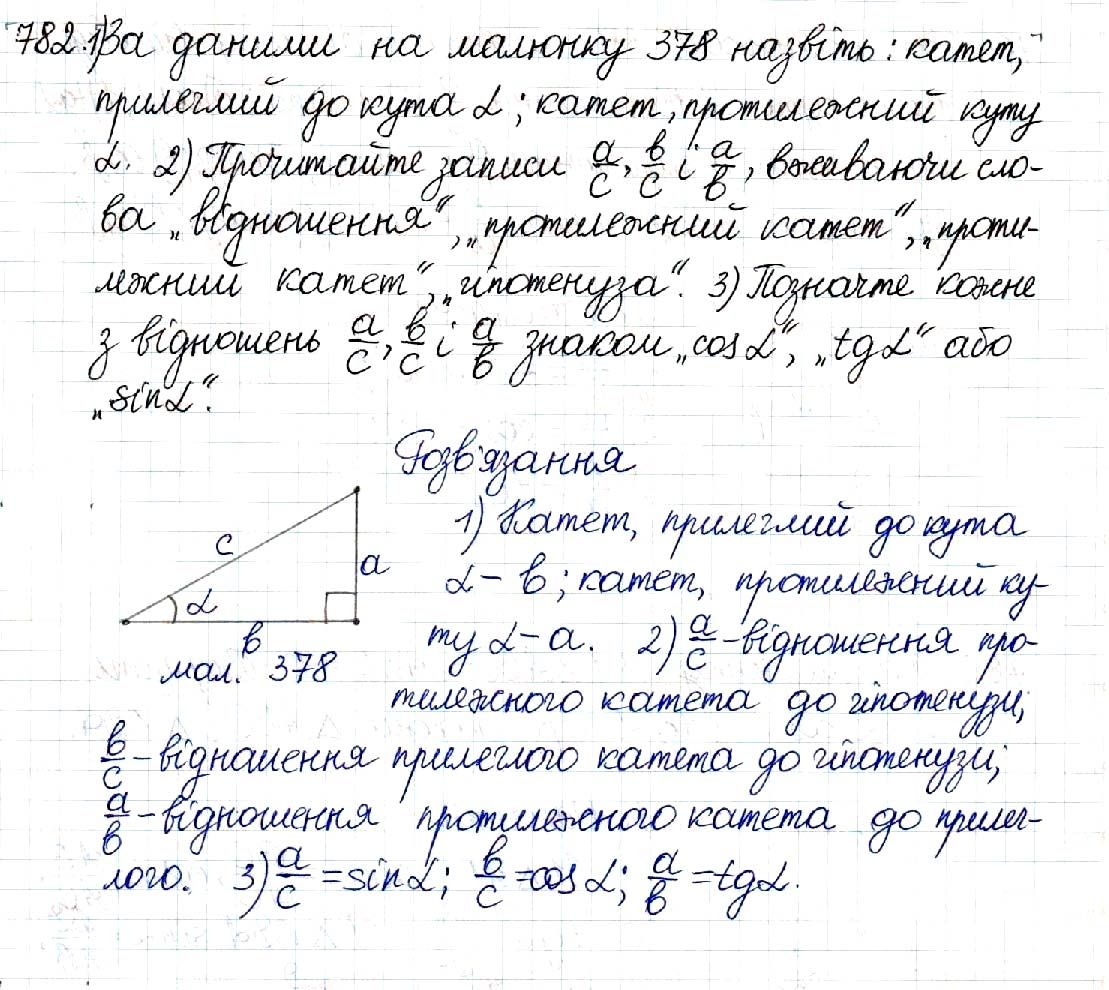 782.1)За даними на малюнку 378 назвіть: катет,
прилеглий до кута α; катет, протилежний куту
α. 2) Прочитайте записи a/c, b/c і a/b, вживаючи сло-
ва „відношення“, „протилежний катет“, „проти-
лежний катет“, „гіпотенуза“. 3) Позначте кожне
з відношень a/c, b/c і a/b знаком „cos α“, „tg α“ або
„sin α“.
Розв'язання
1) Катет, прилеглий до кута
α – b; катет, протилежний ку-
ту α – a. 2) a/c – відношення про-
тилежного катета до гіпотенузи;
b/c – відношення прилеглого катета до гіпотенузи;
a/b – відношення протилежного катета до прилег-
лого. 3) a/c = sin α; b/c = cos α; a/b = tg α.
c
a
α
b
мал. 378